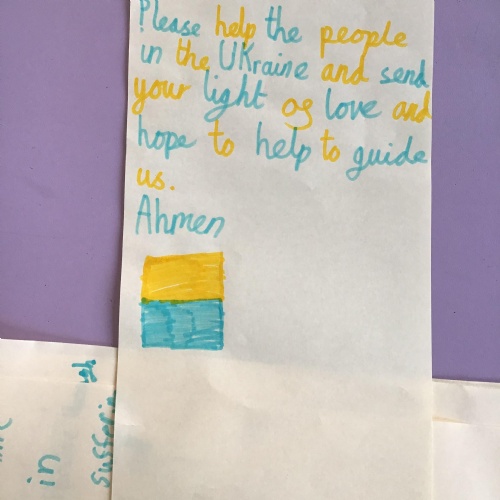 Please help the people
in the UKraine and send
your light og love and
hope to help to guide
us.
Ahmen
in